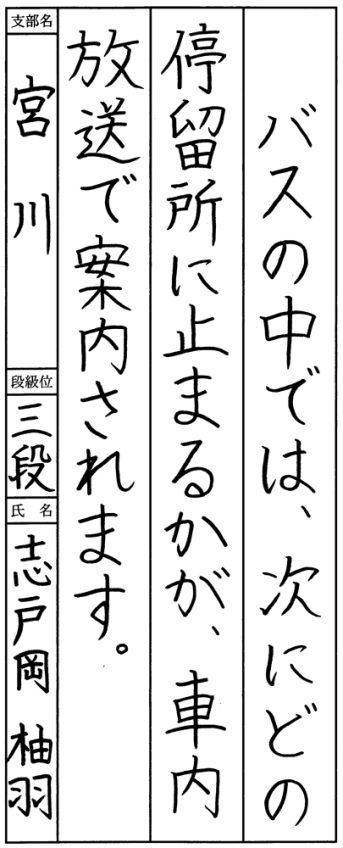 バスの中では、次にどの
停留所に止まるかが、車内
放送で案内されます。
支部名
宮川
段級位
三段
氏名
志戸岡 柚羽